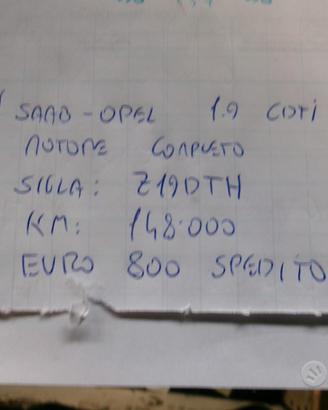 SAAB - OPEL 1.9 CDTI
MOTORE COMPLETO
SIGLA: Z19DTH
KM: 148.000
EURO 800 SPEDITO